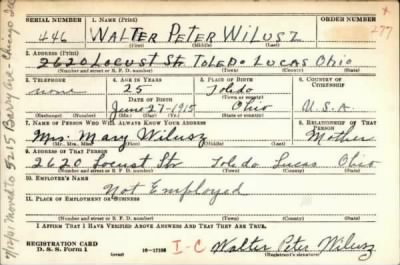 SERIAL NUMBER 1. NAME (Print) ORDER NUMBER
446 WALTER PETER WILUSZ 277
(First) (Middle) (Last)
2. ADDRESS (Print)
2620 LOCUST Str. TOLEDO LUCAS Ohio
(Number and street or R. F. D. number) (Town) (County) (State)
3. TELEPHONE 4. AGE IN YEARS 5. PLACE OF BIRTH 6. COUNTRY OF CITIZENSHIP
none 25 Toledo
DATE OF BIRTH (Town or county)
June-27-1915 Ohio U.S.A.
(Mo.) (Day) (Yr.) (State or country)
7. NAME OF PERSON WHO WILL ALWAYS KNOW YOUR ADDRESS 8. RELATIONSHIP OF THAT PERSON
Mrs. Mary Wilusz Mother
(Mr., Mrs., Miss) (First) (Middle) (Last)
9. ADDRESS OF THAT PERSON
2620 Locust Str Toledo Lucas Ohio
(Number and street or R. F. D. number) (Town) (County) (State)
10. EMPLOYER'S NAME
Not Employed
11. PLACE OF EMPLOYMENT OR BUSINESS
(Number and street or R. F. D. number) (Town) (County) (State)
I AFFIRM THAT I HAVE VERIFIED ABOVE ANSWERS AND THAT THEY ARE TRUE.
REGISTRATION CARD
D. S. S. Form 1 (over) 16-17105 I-C Walter Peter Wilusz
(Registrant's signature)
moved to 5215 Barry Ave - Chicago